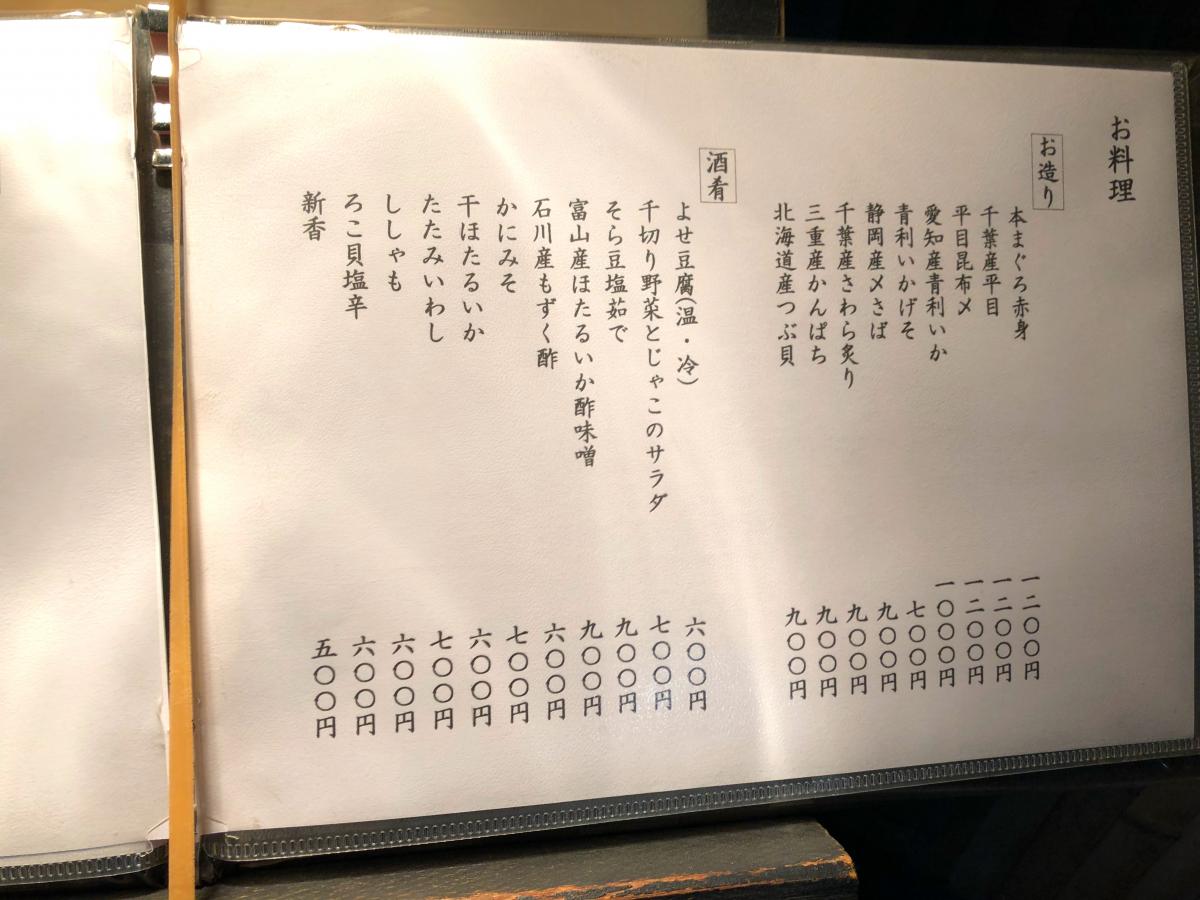 お料理
お造り
本まぐろ赤身 一二〇〇円
千葉産平目 一二〇〇円
平目昆布〆 一二〇〇円
愛知産青利いか 一〇〇〇円
青利いかげそ 七〇〇円
静岡産〆さば 九〇〇円
千葉産さわら炙り 九〇〇円
三重産かんぱち 九〇〇円
北海道産つぶ貝 九〇〇円
酒肴
よせ豆腐(温・冷) 六〇〇円
千切り野菜とじゃこのサラダ 七〇〇円
そら豆塩茹で 九〇〇円
富山産ほたるいか酢味噌 九〇〇円
石川産もずく酢 六〇〇円
かにみそ 七〇〇円
干ほたるいか 六〇〇円
たたみいわし 七〇〇円
ししゃも 六〇〇円
ろこ貝塩辛 六〇〇円
新香 五〇〇円